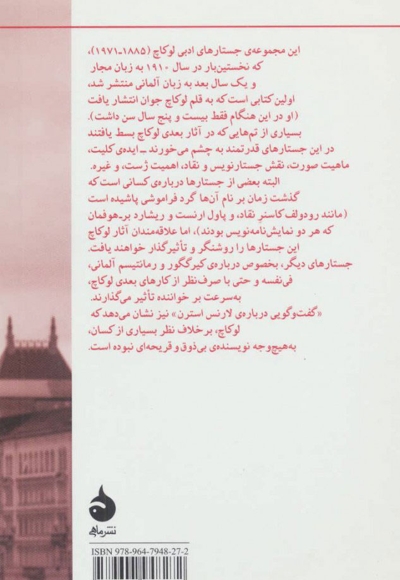 این مجموعه‌ی جستارهای ادبی لوکاچ (۱۸۸۵ـ۱۹۷۱)،
که نخستین‌بار در سال ۱۹۱۰ به زبان مجار
و یک سال بعد به زبان آلمانی منتشر شد،
اولین کتابی است که به قلم لوکاچ جوان انتشار یافت
(او در این هنگام فقط بیست و پنج سال سن داشت).
بسیاری از تم‌هایی که در آثار بعدی لوکاچ بسط یافتند
در این جستارهای قدرتمند به چشم می‌خورند ـ ایده‌ی کلیت،
ماهیت صورت، نقش جستارنویس و نقاد، اهمیت ژست، و غیره.
البته بعضی از جستارها درباره‌ی کسانی است که
گذشت زمان بر نام آن‌ها گرد فراموشی پاشیده است
(مانند رودولف کاسنر نقاد، و پاول ارنست و ریشارد بر-هوفمان
که هر دو نمایش‌نامه‌نویس بودند)، اما علاقه‌مندان آثار لوکاچ
این جستارها را روشنگر و تأثیرگذار خواهند یافت.
جستارهای دیگر، بخصوص درباره‌ی کیرکگور و رمانتیسم آلمانی،
فی‌نفسه و حتی با صرف‌نظر از کارهای بعدی لوکاچ،
به‌سرعت بر خواننده تأثیر می‌گذارند.
«گفت‌وگویی درباره‌ی لارنس استرن» نیز نشان می‌دهد که
لوکاچ، برخلاف نظر بسیاری از کسان،
به‌هیچ‌وجه نویسنده‌ی بی‌ذوق و قریحه‌ای نبوده است.
نشر ماهی
ISBN 978-964-7948-27-2